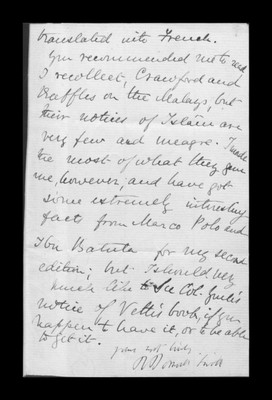 translated into French.
You recommended me to read
I recollect, Crawford and
Raffles on the Malays, but
their notices of Islâm are
very few and meagre. I made
the most of what they gave
me, however, and have got
some extremely interesting
fact from Marco Polo and
Ibn Batuta for my second
edition; but I should very
much like to see Col. Yule's
notice of Veth's book, if you
happen to have it, or to be able
to get it.
yours most truly
R Bosworth Smith